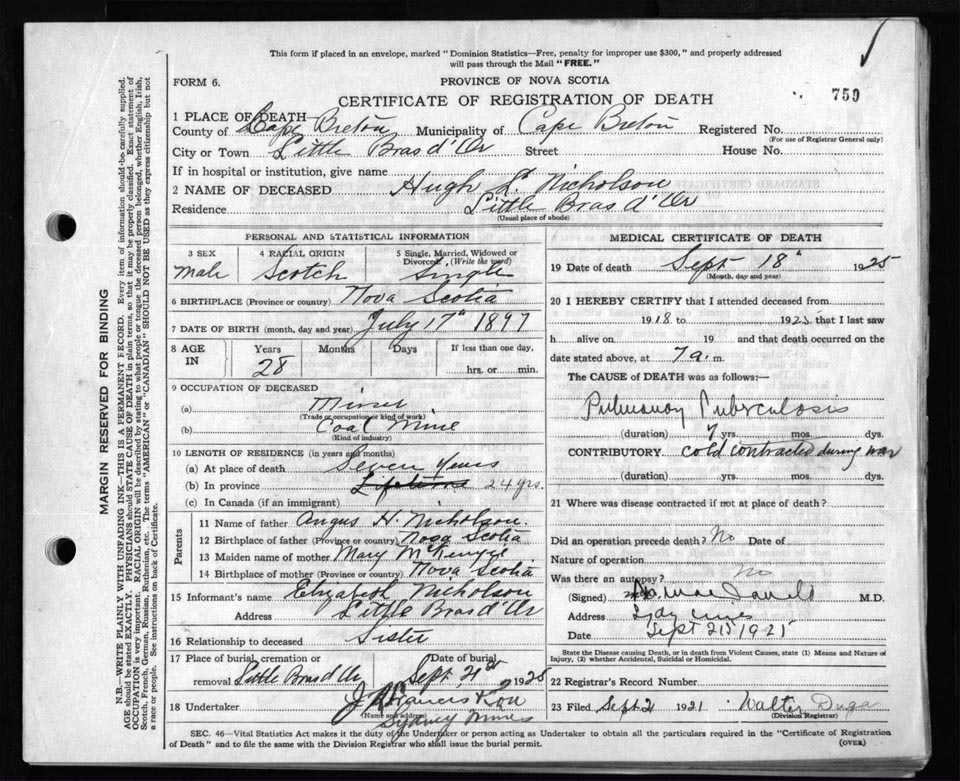 This form if placed in an envelope, marked "Dominion Statistics—Free, penalty for improper use $300," and properly addressed
will pass through the Mail "FREE."
FORM 6.
PROVINCE OF NOVA SCOTIA
CERTIFICATE OF REGISTRATION OF DEATH
759
1 PLACE OF DEATH
County of Cape Breton Municipality of Cape Breton Registered No.
(For use of Registrar General only)
City or Town Little Bras d'Or Street House No.
If in hospital or institution, give name
2 NAME OF DECEASED Hugh Nicholson
Residence Little Bras d'Or
(Usual place of abode)
PERSONAL AND STATISTICAL INFORMATION
3 SEX 4 RACIAL ORIGIN 5 Single, Married, Widowed or Divorced (Write the word)
Male Scotch Single
6 BIRTHPLACE (Province or country) Nova Scotia
7 DATE OF BIRTH (month, day and year) July 17th 1897
8 AGE IN Years Months Days If less than one day,
28 hrs. or min.
9 OCCUPATION OF DECEASED
(a) Miner
(Trade or occupation or kind of work)
(b) Coal Mine
(Kind of industry)
10 LENGTH OF RESIDENCE (in years and months)
(a) At place of death Seven Years
(b) In province Lifetime 24 yrs.
(c) In Canada (if an immigrant)
Parents
11 Name of father Angus H. Nicholson.
12 Birthplace of father (Province or country) Nova Scotia
13 Maiden name of mother Mary McKenzie
14 Birthplace of mother (Province or country) Nova Scotia
15 Informant's name Elizabeth Nicholson
Address Little Bras d'Or
16 Relationship to deceased Sister
17 Place of burial, cremation or removal Little Bras d'Or Date of burial Sept 21st 1925
18 Undertaker J. Francis & Son
(Name and address)
Sydney Mines
MEDICAL CERTIFICATE OF DEATH
19 Date of death Sept 18th 1925
(Month, day and year)
20 I HEREBY CERTIFY that I attended deceased from
1918 to 1925 that I last saw
h alive on 19 and that death occurred on the
date stated above, at 7 a. m.
The CAUSE of DEATH was as follows:—
Pulmonary Tuberculosis
(duration) 7 yrs. mos. dys.
CONTRIBUTORY cold contracted during war
(duration) yrs. mos. dys.
21 Where was disease contracted if not at place of death?
Did an operation precede death? No Date of
Nature of operation
Was there an autopsy? No
(Signed) M.D.
Address
Date Sept 21st 1925
State the Disease causing Death, or in death from Violent Causes, state (1) Means and Nature of
Injury, (2) whether Accidental, Suicidal or Homicidal.
22 Registrar's Record Number
23 Filed Sept 21 1921 Walter Duga
(Division Registrar)
SEC. 46—Vital Statistics Act makes it the duty of the Undertaker or person acting as Undertaker to obtain all the particulars required in the "Certificate of Registration
of Death" and to file the same with the Division Registrar who shall issue the burial permit.
(OVER)
MARGIN RESERVED FOR BINDING
N.B.—WRITE PLAINLY WITH UNFADING INK—THIS IS A PERMANENT RECORD. Every item of information should be carefully supplied.
AGE should be stated EXACTLY. PHYSICIANS should STATE CAUSE OF DEATH in plain terms, so that it may be properly classified. Exact statement of
OCCUPATION is very important. RACIAL ORIGIN will be described by stating to what people or tongue the deceased person belonged, whether English, Irish,
Scotch, French, German, Russian, Ruthenian, etc. The terms "AMERICAN" or "CANADIAN" SHOULD NOT BE USED as they express citizenship but not
a race or people. See instructions on back of Certificate.